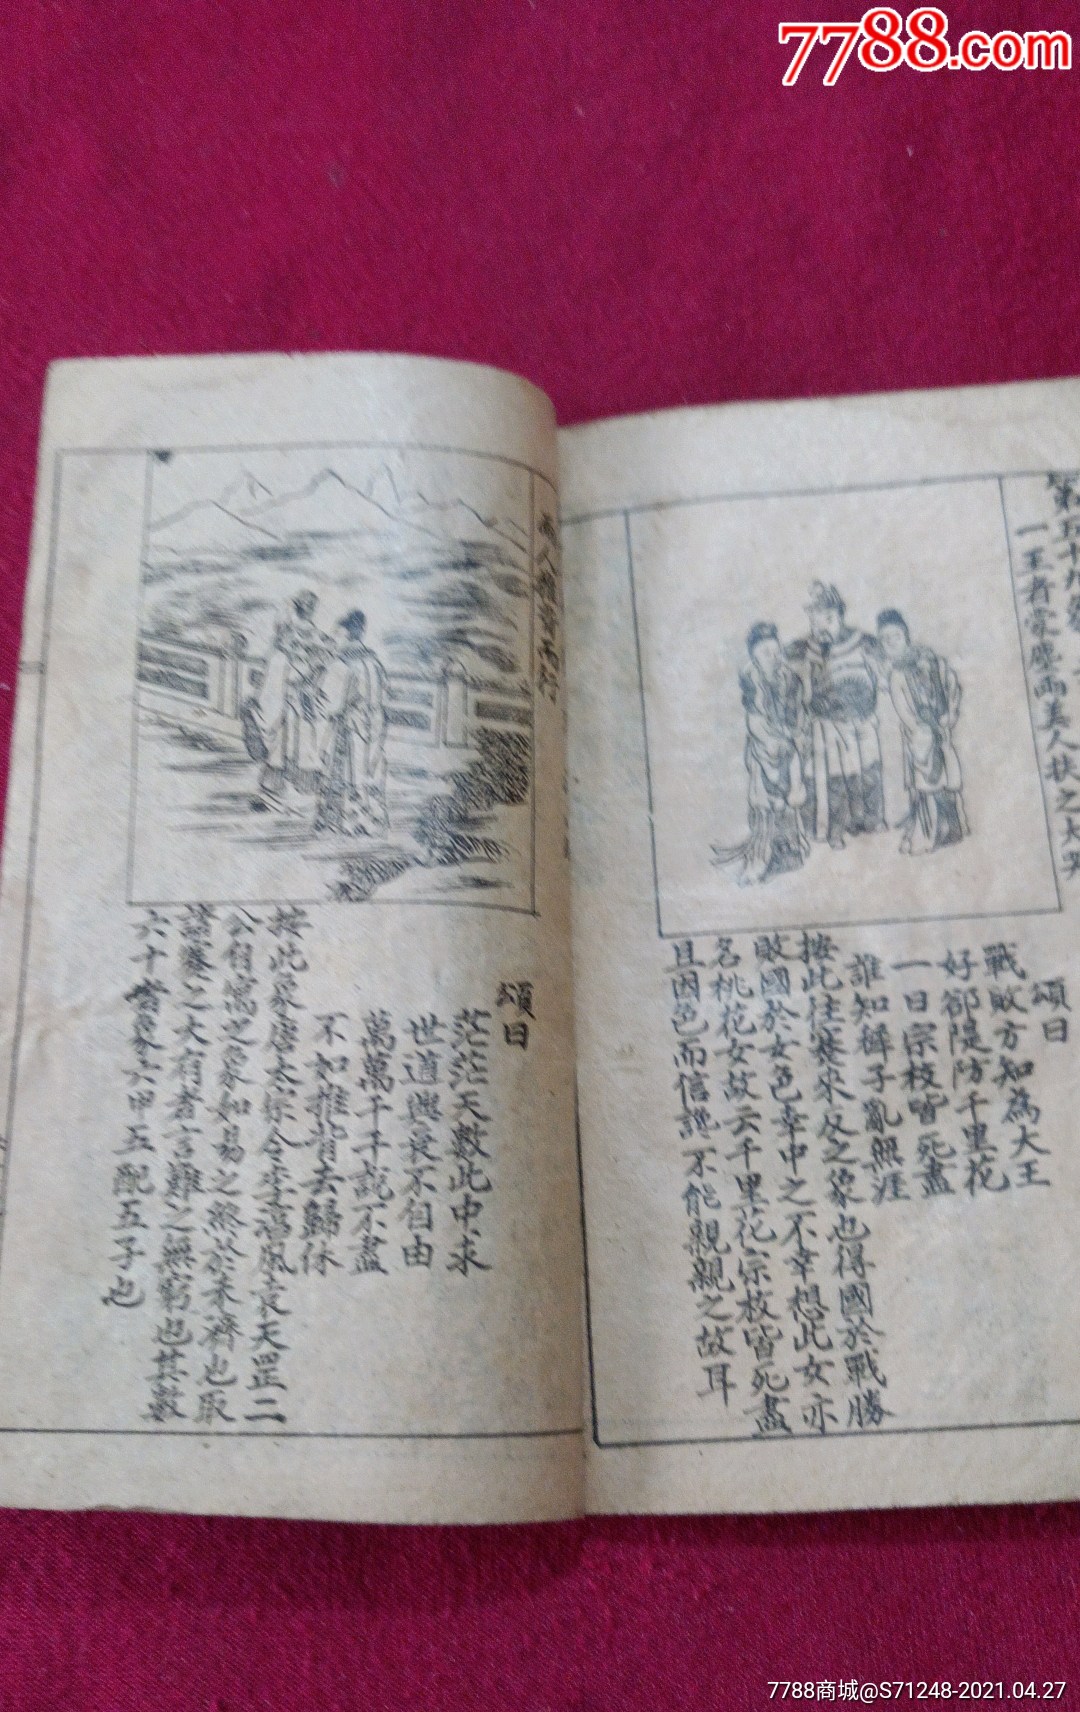 7788.com
第五十九象
一王者蒙塵兩美人扶之大哭
頌曰
戰敗方知為大王
好部隄防千里花
一日宗枝皆死盡
誰知稗子亂無涯
按此往蹇來反之象也得國於戰勝
敗國於女色幸中之不幸想此女亦
名桃花女故云千里花宗枝皆死盡
且因色而信讒不能親親之故耳
兩人
頌曰
茫茫天數此中求
世道興衰不自由
萬萬千千說不盡
不如推背去歸休
按此象唐太宗令李淳風袁天罡二
公自寓之象如易之終於未濟也取
諸蹇之大有者言難之無窮也其數
六十當象六甲五配五子也
7788商城@S71248-2021.04.27